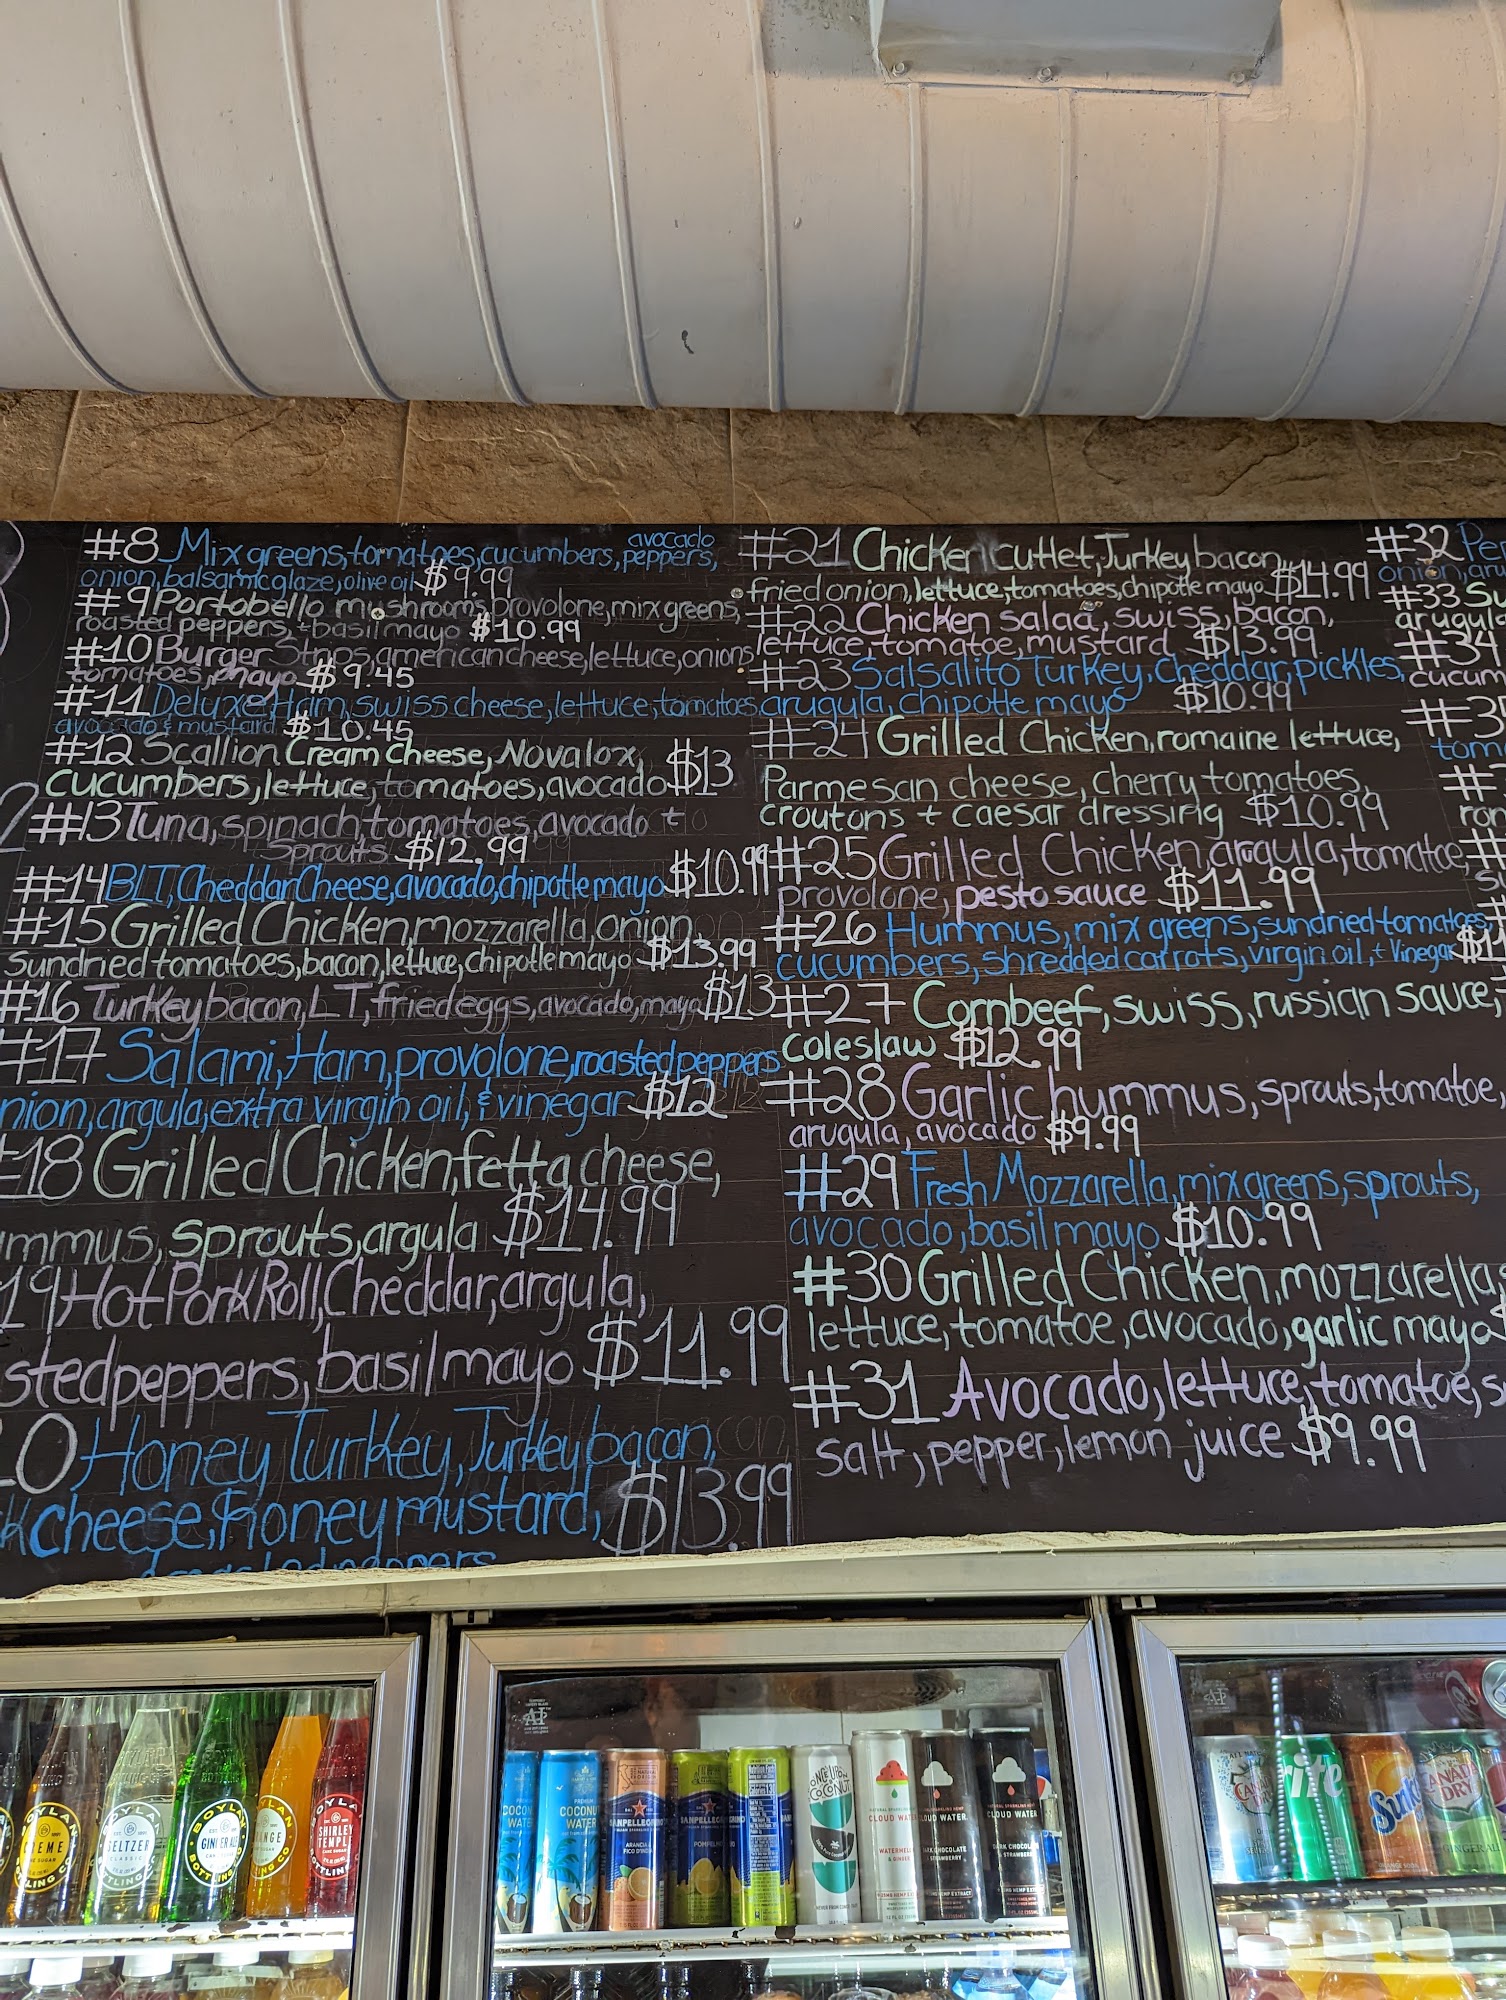 #8 Mix greens, tomatoes, cucumbers, avocado peppers,
onion, balsamic glaze, olive oil $9.99
#9 Portobello mushrooms, provolone, mix greens,
roasted peppers, + basil mayo $10.99
#10 Burger Strips, american cheese, lettuce, onions
tomatoes, mayo $9.45
#11 Deluxe Ham, swiss cheese, lettuce, tomatoes
avocado & mustard $10.45
#12 Scallion Cream cheese, Nova lox,
cucumbers, lettuce, tomatoes, avocado $13
#13 Tuna, spinach, tomatoes, avocado +
Sprouts $12.99
#14 BLT, Cheddar Cheese, avocado, chipotle mayo $10.99
#15 Grilled Chicken, mozzarella, onion,
Sundried tomatoes, bacon, lettuce, chipotle mayo $13.99
#16 Turkey bacon, LT, fried eggs, avocado, mayo $13
#17 Salami, Ham, provolone, roasted peppers
nion, argula, extra virgin oil, & vinegar $12
#18 Grilled Chicken, fetta cheese,
mmus, sprouts, argula $14.99
19 Hot Pork Roll, Cheddar, argula,
sted peppers, basil mayo $11.99
0 Honey Turkey, Turkey bacon,
k cheese, Honey mustard, $13.99
peppers
#21 Chicken cutlet, Turkey bacon,
fried onion, lettuce, tomatoes, chipotle mayo $14.99
#22 Chicken salad, swiss, bacon,
lettuce, tomatoe, mustard $13.99
#23 Salsalito Turkey, cheddar, pickles,
arugula, chipotle mayo $10.99
#24 Grilled Chicken, romaine lettuce,
Parmesan cheese, cherry tomatoes,
croutons + caesar dressing $10.99
#25 Grilled Chicken, arugula, tomatoe,
provolone, pesto sauce $11.99
#26 Hummus, mix greens, sundried tomatoes,
cucumbers, shredded carrots, virgin oil, + Vinegar $11
#27 Cornbeef, swiss, russian sauce,
coleslaw $12.99
#28 Garlic hummus, sprouts, tomatoe,
arugula, avocado $9.99
#29 Fresh Mozzarella, mix greens, sprouts,
avocado, basil mayo $10.99
#30 Grilled Chicken, mozzarella,
lettuce, tomatoe, avocado, garlic mayo $
#31 Avocado, lettuce, tomatoe, s
salt, pepper, lemon juice $9.99
#32 Pe
onion, aru
#33 Su
arugula
#34
cucum
#3
tom
#
ron
#
BOYLAN
CREME
BOTTLING CO
BOYLAN
SELTZER
CLASSIC
BOYLAN
GINGER ALE
BOTTLING
BOYLAN
ORANGE
BOYLAN
SHIRLEY TEMPLE
BOTTLING
COCONUT WATER
PREMIUM
COCONUT WATER
SANPELLEGRINO
ARANCIA & FICO D'INDIA
SANPELLEGRINO
POMPELMO
ONCE UPON A COCONUT
CLOUD WATER
WATERMELON
CLOUD WATER
DARK CHOCOLATE
& STRAWBERRY
CLOUD WATER
DARK CHOCOLATE
& STRAWBERRY
ite
Sunk
CANADA DRY
GINGER ALE